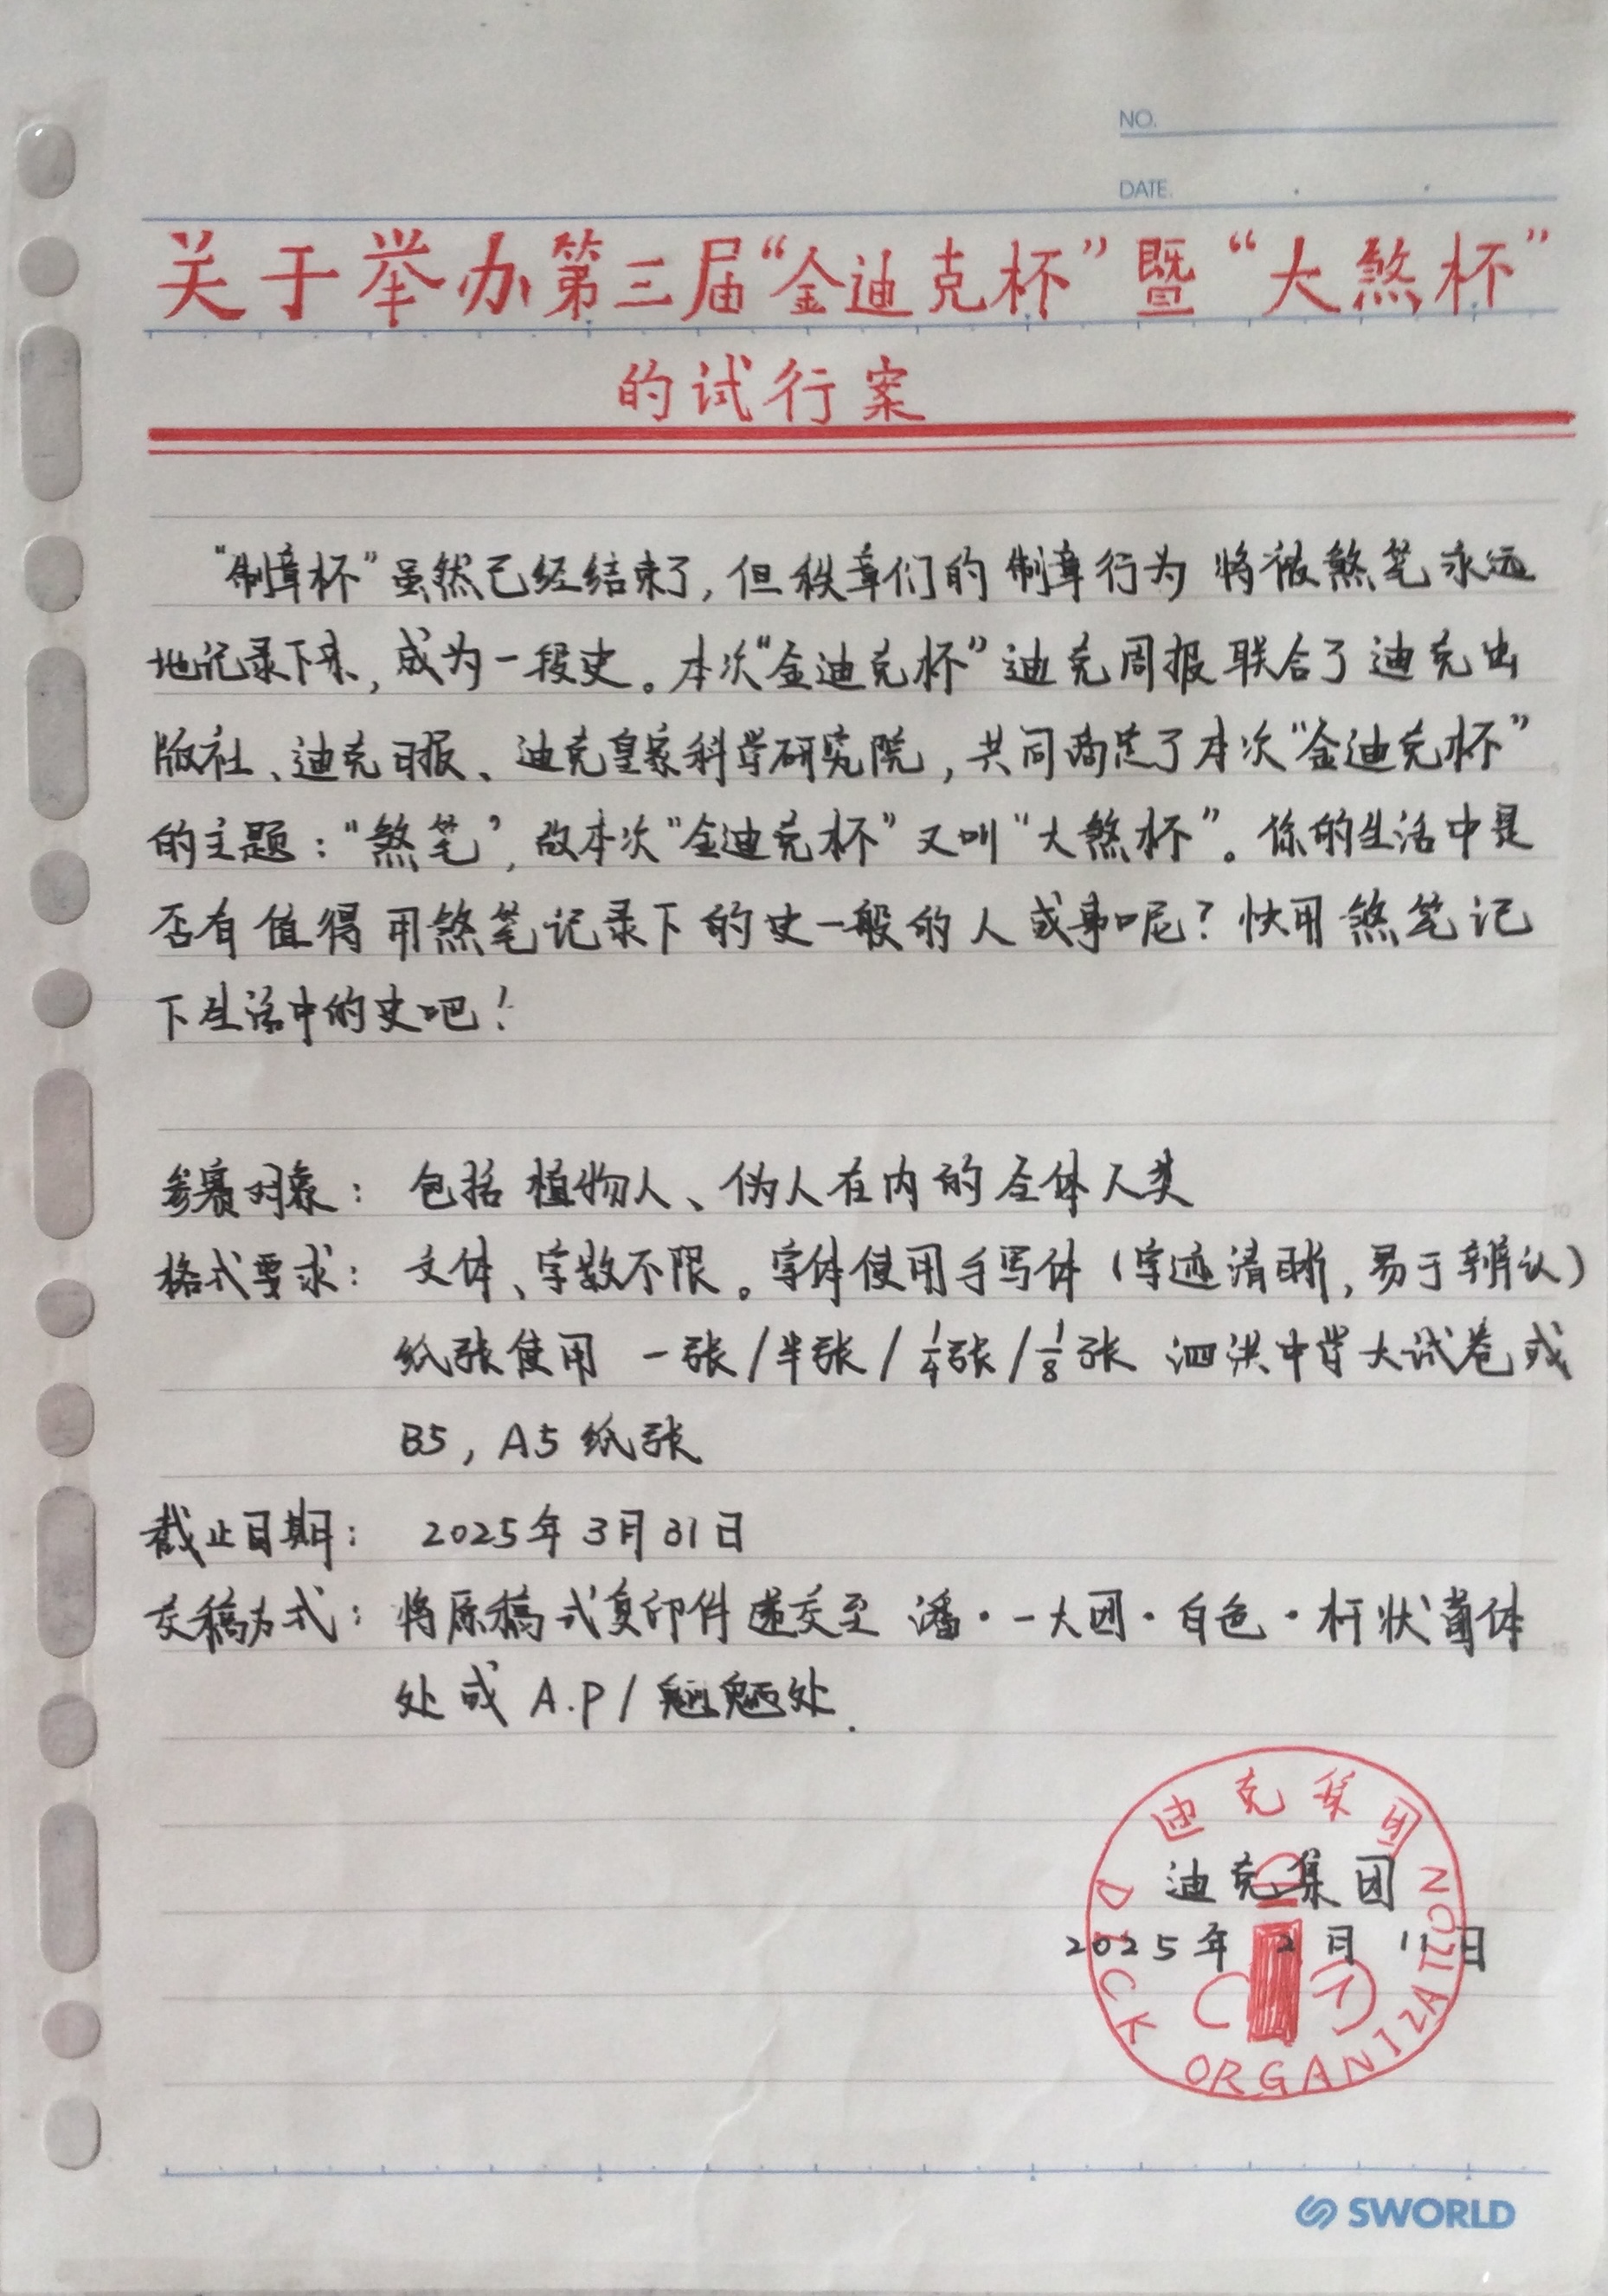 NO.
DATE.
关于举办第三届“金迪克杯”暨“大煞杯”
的试行案
“制章杯”虽然已经结束了，但秩章们的制章行为将被煞笔永远
地记录下来，成为一段史。本次“金迪克杯”迪克周报联合了迪克出
版社、迪克日报、迪克皇家科学研究院，共同商定了本次“金迪克杯”
的主题：“煞笔”，故本次“金迪克杯”又叫“大煞杯”。你的生活中是
否有值得用煞笔记录下的史一般的人或事呢？快用煞笔记
下生活中的史吧！
参赛对象：包括植物人、伪人在内的全体人类
格式要求：文体、字数不限。字体使用手写体（字迹清晰，易于辨认）
纸张使用 一张/半张/1/4张/1/8张 泗洪中学大试卷或
B5，A5纸张
10
15
截止日期：2025年3月31日
交稿方式：将原稿或复印件递交至 潘·一大团·白色·杆状菌体
处或 A.P/魍魉处.
迪克集团
迪克集团
2025年2月11日
DICK ORGANIZATION
SWORLD